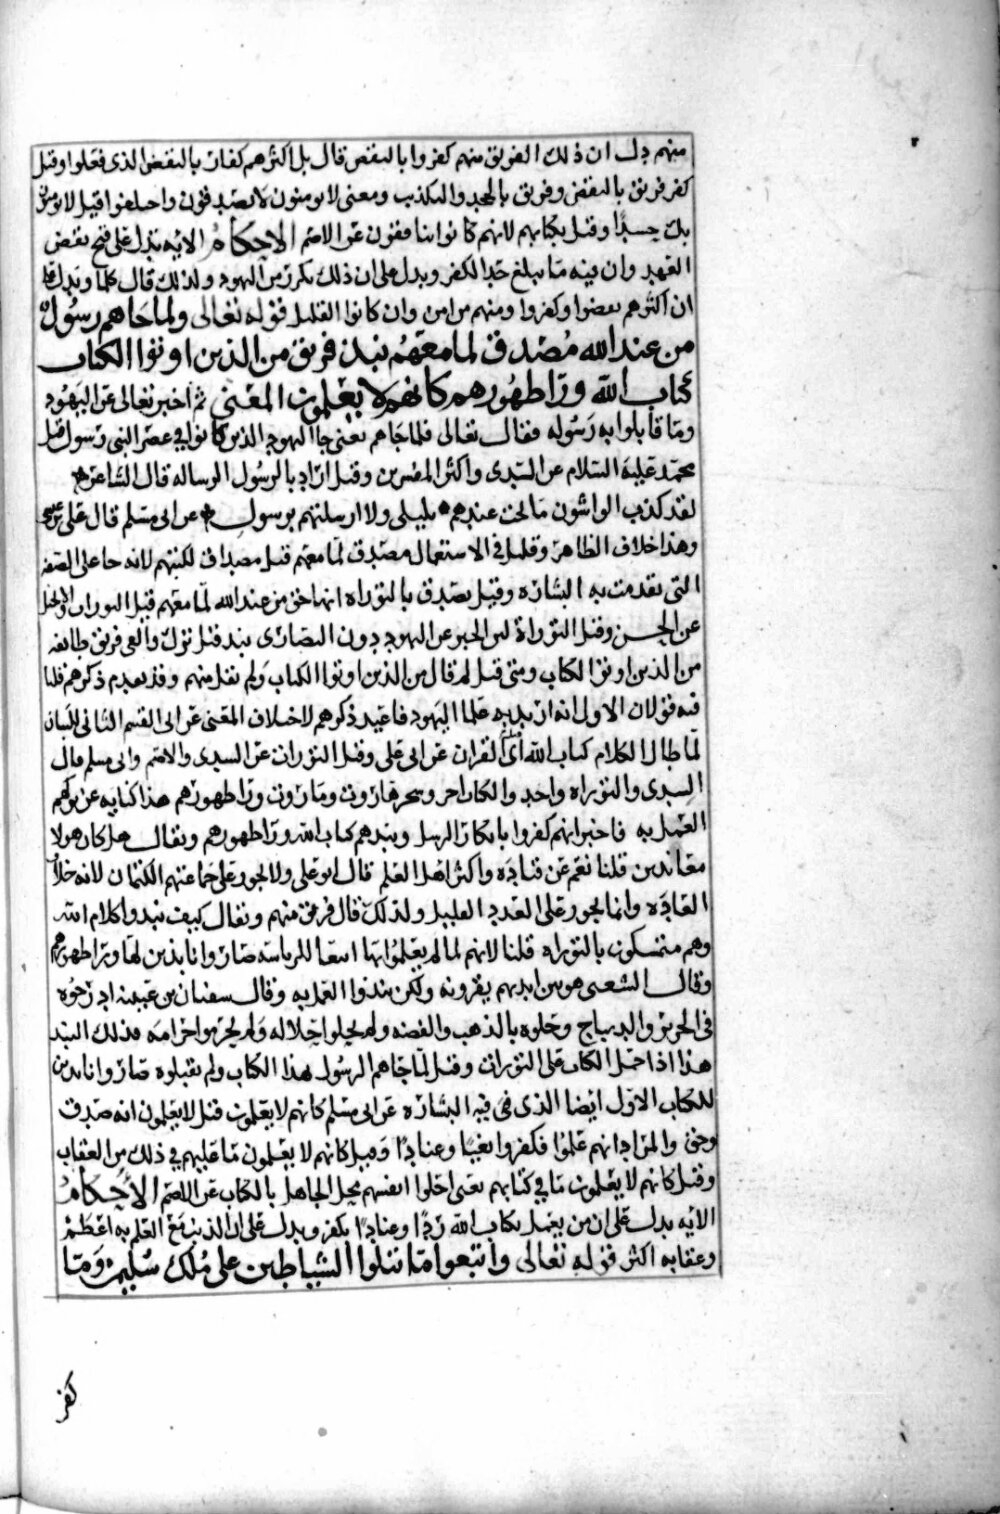 منهم دل ان ذلك الفريق منهم كفروا بالنقض قال بل اكثرهم كفار بالنقض الذى فعلوا وقيل
كفر فريق بالنقض وفريق بالجحد والتكذيب ومعنى لا يومنون لا يصدقون واختلفوا فقيل لا يومنون
بك حسدًا وقيل بكتابهم لانهم كانوا ينافقون عن الاصم الاحكام الايه تدل على قبح نقض
العهد وان فيه ما يبلغ حد الكفر ويدل على ان ذلك تكرر من اليهود ولذلك قال كلما ويدل على
ان اكثرهم نقضوا وكفروا ومنهم من امن وان كانوا القليل قوله تعالى ولما جاهم رسول
من عند الله مصدق لما معهم نبذ فريق من الذين اوتوا الكتاب
كتاب الله ورا ظهورهم كانهم لا يعلمون المعنى ثم اخبر تعالى عن اليهود
وما قابلوا به رسوله فقال تعالى فلما جاهم يعنى جا اليهود الذين كانوا في عصر النبى رسول قيل
محمد عليه السلام عن السدى واكثر المفسرين وقيل اراد بالرسول الرساله قال الشاعر
لقد كذب الواشون ما بحت عندهم بليلى ولا ارسلتهم برسول عن ابى مسلم قال على بن عيسى
وهذا خلاف الظاهر وقليل في الاستعمال مصدق لما معهم قيل مصداق لكتبهم لانه جا على الصفه
التى تقدمت به البشاره وقيل يصدق بالتوراه انها حق من عند الله لما معهم قيل التوراه والانجيل
عن الحسن وقيل التوراة لان الخبر عن اليهود دون النصارى نبذ قيل ترك والقى فريق طايفه
من الذين اوتوا الكتاب ومتى قيل لم قال من الذين اوتوا الكتاب ولم يقل منهم وقد تقدم ذكرهم قلنا
فيه قولان الاول انه اريد به علما اليهود فاعيد ذكرهم لاختلاف المعنى عن ابى القسم الثانى للبيان
لما طال الكلام كتاب الله اى القران عن ابى على وقيل التورات عن السدى والاصم وابى مسلم قال
السدى والتوراه واحد والكتاب اخر وسحر هاروت وماروت ورا ظهورهم هذا كنايه عن تركهم
العمل به فاخبر انهم كفروا بانكار الرسل ونبذهم كتاب الله ورا ظهورهم ويقال هل كان هولا
معاندين قلنا نعم عن قتاده واكثر اهل العلم قال ابو على ولا يجوز على جماعتهم الكتمان لانه خلاف
العاده وانما يجوز على العدد القليل ولذلك قال فريق منهم ويقال كيف نبذوا كلام الله
وهم متمسكون بالتوراه قلنا لانهم لما لم يعلموا بها ابتغا للرياسه صاروا نابذين لها ورا ظهورهم
وقال الشعبى هو بين ايديهم يقرونه ولكن نبذوا العمل به وقال سفيان بن عيينه ادرجوه
فى الحرير والديباج وحلوه بالذهب والفضه ولم يحلوا حلاله ولم يحرموا حرامه فذلك النبذ
هذا اذا حمل الكتاب على التورات وقيل لما جاهم الرسول بهذا الكتاب ولم يقبلوه صاروا نابذين
للكتاب الاول ايضا الذى فى فيه البشاره عن ابى مسلم كانهم لا يعلمون قيل لا يعلمون انه صدق
وحق والمراد انهم علموا فكفروا بغيا وعنادًا وقيل كانهم لا يعلمون ما عليهم في ذلك من العقاب
وقيل كانهم لا يعلمون ما في كتابهم يعنى احلوا انفسهم محل الجاهل بالكتاب عن الاصم الاحكام
الايه يدل على ان من يعمل بكتاب الله ردًا وعنادًا يكفر ويدل على ان الذنب مع العلم به اعظم
وعقابه اكثر قوله تعالى واتبعوا ما تتلوا الشياطين على ملك سليمن وما
كفر